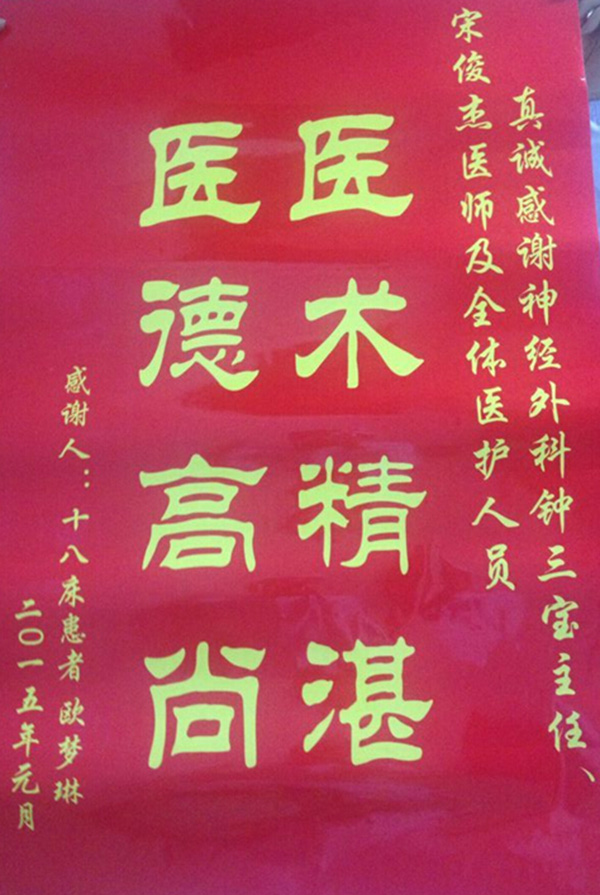 真诚感谢神经外科钟三宝主任、
宋俊杰医师及全体医护人员
医术精湛
医德高尚
感谢人：十八床患者欧梦琳
二〇一五年元月